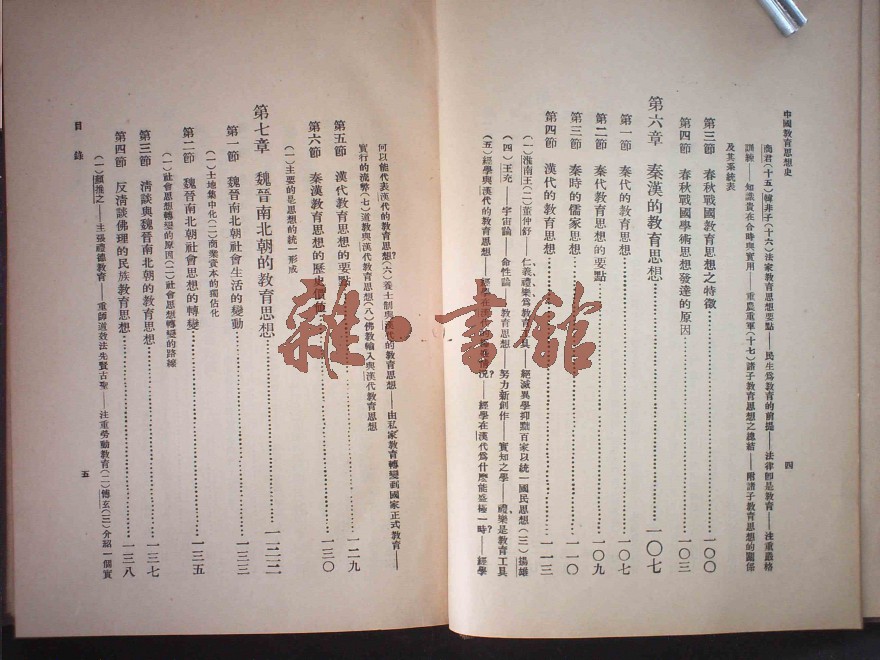 中國教育思想史
四
商君(十五)韓非子(十六)法家教育思想要點——民生爲教育的前提——法律卽是教育——注重嚴格
訓練——知識貴在合時與實用——重農重軍(十七)諸子教育思想之總結——附諸子教育思想的關係
及其系統表
第三節 春秋戰國教育思想之特徵 一〇〇
第四節 春秋戰國學術思想發達的原因 一〇三
第六章 秦漢的教育思想 一〇七
第一節 秦代教育思想 一〇七
第二節 秦代教育思想的要點 一〇九
第三節 秦時的儒家思想 一一〇
第四節 漢代的教育思想 一一三
(一)淮南王(二)董仲舒——仁、義、禮、樂爲教育工具——絕滅異學抑黜百家以統一國民思想(三)揚雄
(四)王充——宇宙論——命性論——教育思想——努力新創作——實知之學——禮、樂是教育工具
(五)經學與漢代的教育思想——經學在漢代的 情況?——經學在漢代爲什麼能盛極一時?——經學
何以能代表漢代的教育思想?(六)養士制與漢代的教育思想——由私家教育轉變到國家正式教育——
實行的流弊(七)道教與漢代教育思想(八)佛教輸入與漢代教育思想
第五節 漢代教育思想的要點 一二九
第六節 秦漢教育思想的歷史價值 一三〇
(一)主要的是思想的統一形成
第七章 魏晉南北朝的教育思想 一三二
第一節 魏晉南北朝社會生活的變動 一三三
(一)土地集中化(二)商業資本的獨佔化
第二節 魏晉南北朝社會思想的轉變 一三五
(一)社會思想轉變的原因(二)社會思想轉變的路線
第三節 清談與魏晉南北朝的教育思想 一三七
第四節 反清談佛理的民族教育思想 一三八
(一)顏推之——主張禮德教育——重師道效法先賢古聖——注重勞動教育(二)傅玄(三)介紹一個實
目錄
五
雜·書館